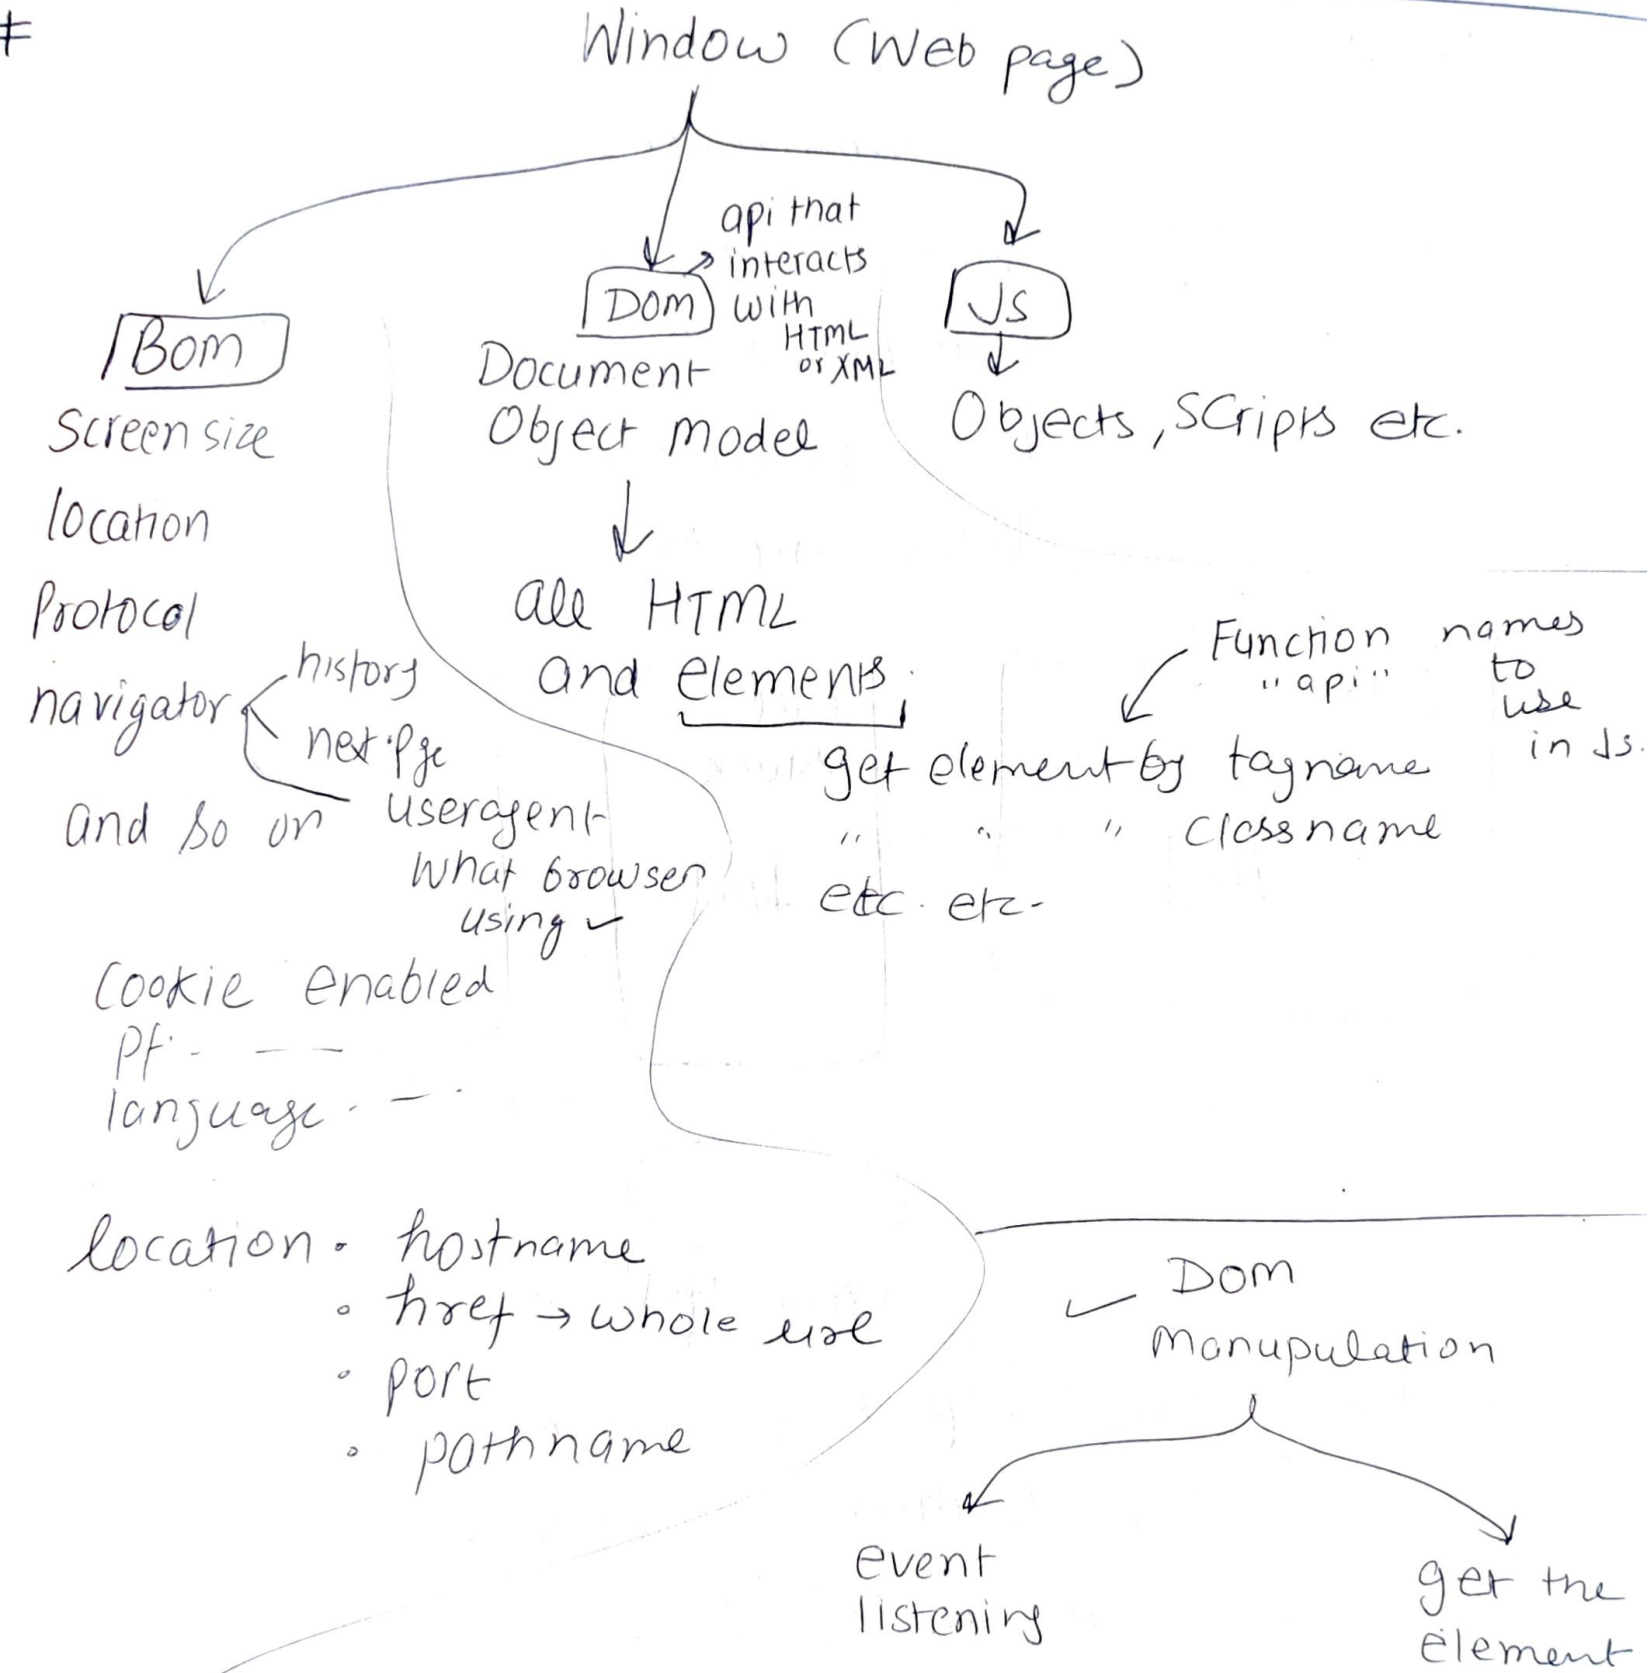 #
Window (Web page)
Bom
Screen size
location
Protocol
navigator
history
next pge
useragent
What browser
using
and so on
Cookie enabled
Pf. - - -
language. - .
location. hostname
• href → whole url
• port
• pathname
Dom
api that
interacts
with
HTML
or XML
Document
Object model
all HTML
and elements.
Function names
"api" to
use
in Js.
get element by tagname
" " " Classname
etc. etc-
Js
Objects, Scripts etc.
Dom
manupulation
event
listening
get the
element